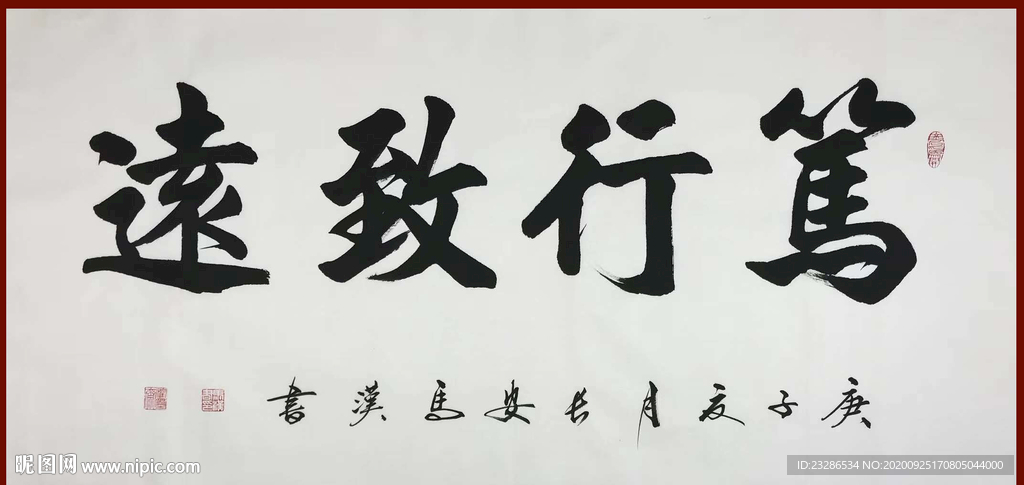 篤行致遠
庚子夏月長安馬漢書
昵图网 www.nipic.com
ID:23286534 NO:20200925170805044000